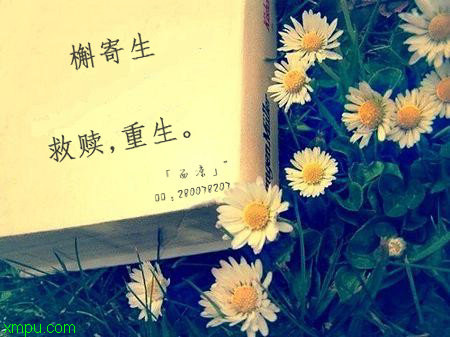 槲寄生
救赎,重生。
QQ:280078207
xmpu.com